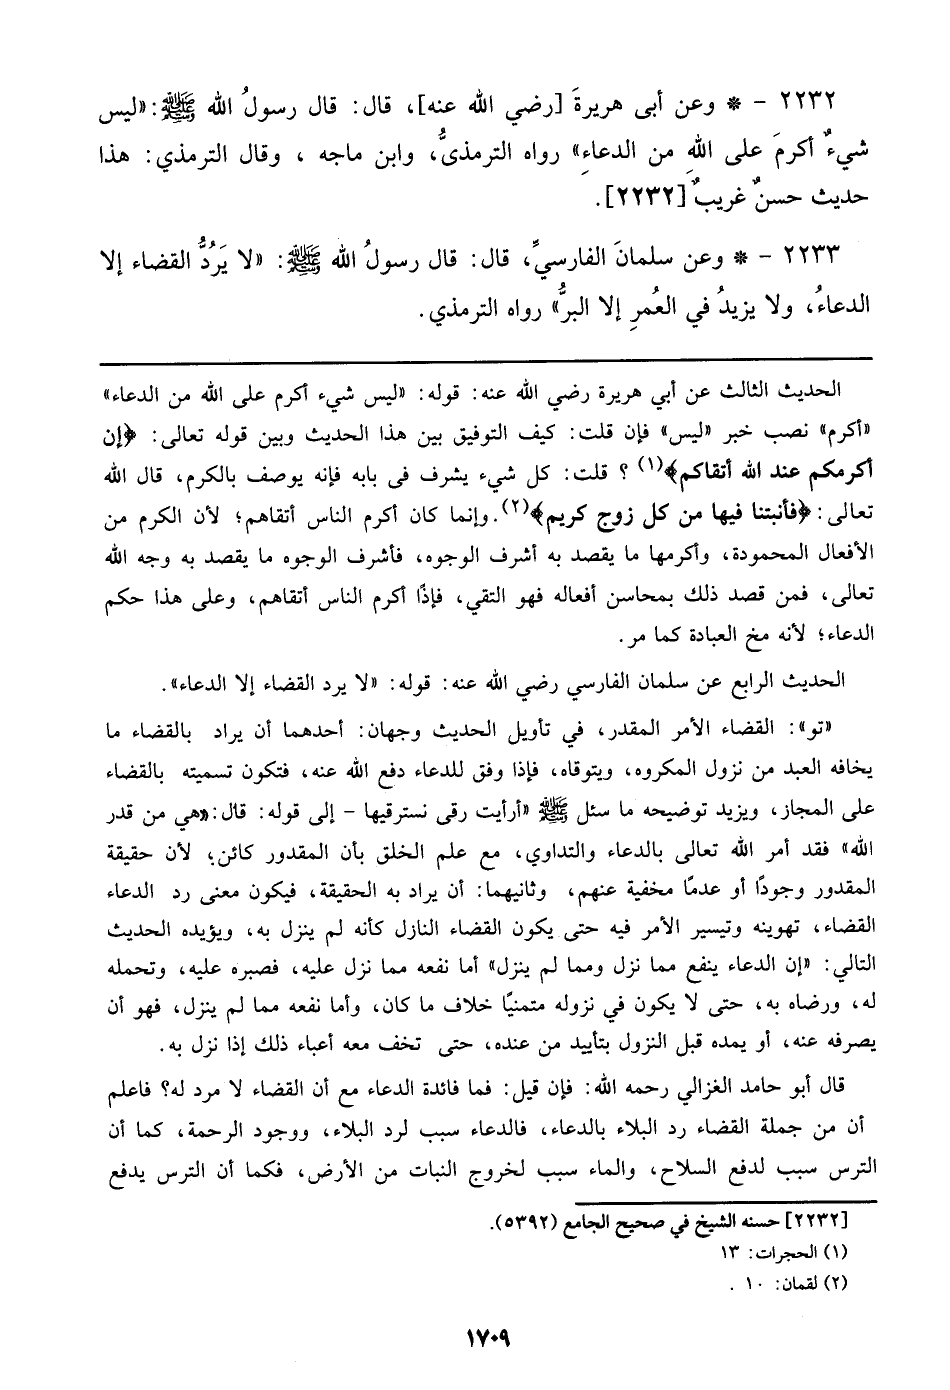 ٢٢٣٢ – * وعن أبى هريرةَ [رضي الله عنه]، قال: قال رسولُ الله ﷺ: «ليس
شيءٌ أكرمَ على اللهِ من الدعاءِ» رواه الترمذىُّ، وابن ماجه ، وقال الترمذي: هذا
حديث حسنٌ غريبٌ [٢٢٣٢].
٢٢٣٣ – * وعن سلمانَ الفارسيِّ، قال: قال رسولُ الله ﷺ: «لا يَرُدُّ القضاء إلا
الدعاءُ، ولا يزيدُ في العُمرِ إلا البرُّ» رواه الترمذي.
الحديث الثالث عن أبي هريرة رضي الله عنه: قوله: «ليس شيء أكرم على الله من الدعاء»
«أكرم» نصب خبر «ليس» فإن قلت: كيف التوفيق بين هذا الحديث وبين قوله تعالى: ﴿إن
أكرمكم عند الله أتقاكم﴾(١) ؟ قلت: كل شيء يشرف فى بابه فإنه يوصف بالكرم، قال الله
تعالى: ﴿فأنبتنا فيها من كل زوج كريم﴾(٢).وإنما كان أكرم الناس أتقاهم؛ لأن الكرم من
الأفعال المحمودة، وأكرمها ما يقصد به أشرف الوجوه، فأشرف الوجوه ما يقصد به وجه الله
تعالى، فمن قصد ذلك بمحاسن أفعاله فهو التقي، فإذًا أكرم الناس أتقاهم، وعلى هذا حكم
الدعاء؛ لأنه مخ العبادة كما مر.
الحديث الرابع عن سلمان الفارسي رضي الله عنه: قوله: «لا يرد القضاء إلا الدعاء».
«تو»: القضاء الأمر المقدر، في تأويل الحديث وجهان: أحدهما أن يراد بالقضاء ما
يخافه العبد من نزول المكروه، ويتوقاه، فإذا وفق للدعاء دفع الله عنه، فتكون تسميته بالقضاء
على المجاز، ويزيد توضيحه ما سئل ﷺ «أرأيت رقى نسترقيها – إلى قوله: قال:«هي من قدر
الله» فقد أمر الله تعالى بالدعاء والتداوي، مع علم الخلق بأن المقدور كائن؛ لأن حقيقة
المقدور وجودًا أو عدمًا مخفية عنهم، وثانيهما: أن يراد به الحقيقة، فيكون معنى رد الدعاء
القضاء، تهوينه وتيسير الأمر فيه حتى يكون القضاء النازل كأنه لم ينزل به، ويؤيده الحديث
التالي: «إن الدعاء ينفع مما نزل ومما لم ينزل» أما نفعه مما نزل عليه، فصبره عليه، وتحمله
له، ورضاه به، حتى لا يكون في نزوله متمنيًا خلاف ما كان، وأما نفعه مما لم ينزل، فهو أن
يصرفه عنه، أو يمده قبل النزول بتأييد من عنده، حتى تخف معه أعباء ذلك إذا نزل به.
قال أبو حامد الغزالي رحمه الله: فإن قيل: فما فائدة الدعاء مع أن القضاء لا مرد له؟ فاعلم
أن من جملة القضاء رد البلاء بالدعاء، فالدعاء سبب لرد البلاء، ووجود الرحمة، كما أن
الترس سبب لدفع السلاح، والماء سبب لخروج النبات من الأرض، فكما أن الترس يدفع
[٢٢٣٢] حسنه الشيخ في صحيح الجامع (٥٣٩٢).
(١) الحجرات: ١٣
(٢) لقمان: ١٠ .
١٧٠٩